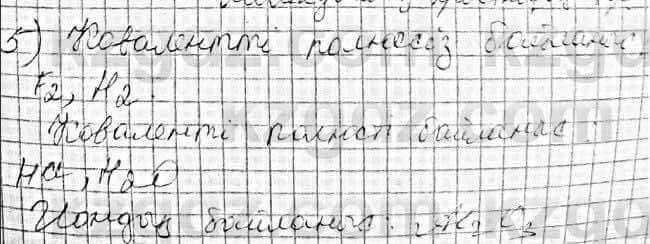 5) Ковалентті полюссіз байланыс
F2, H2.
Ковалентті полюсті байланыс:
HCl, H2O
Иондық байланыс: Al2O3